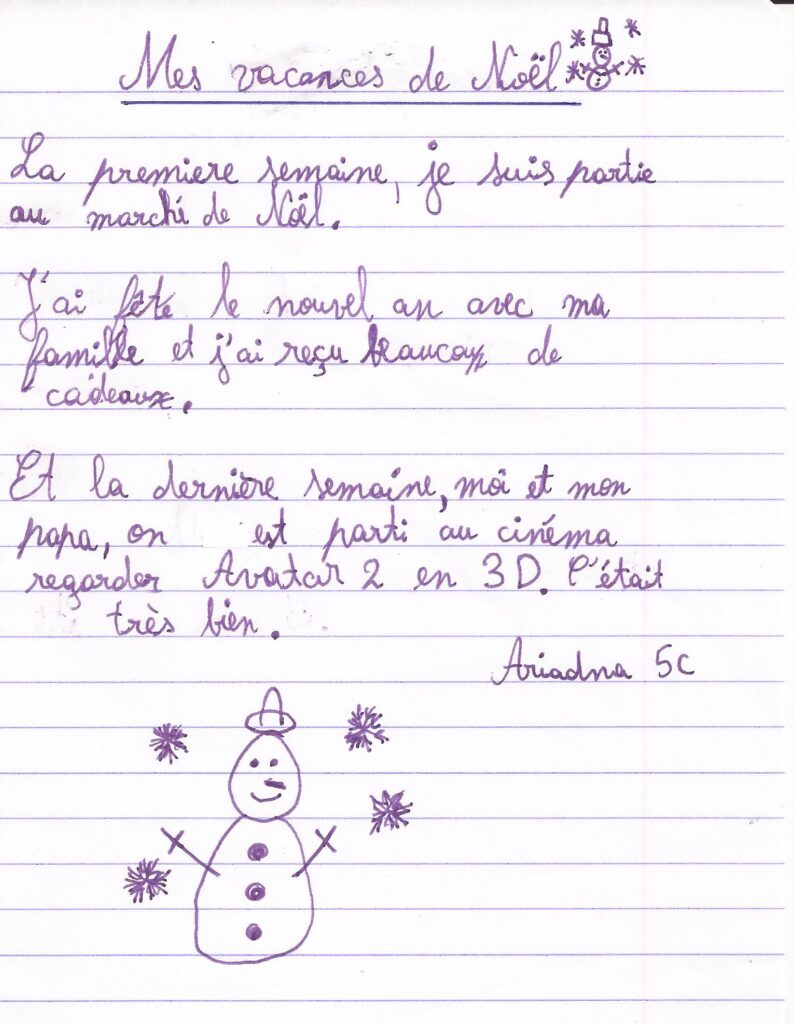 Mes vacances de Noël
La premiere semaine, je suis partie
au marché de Noël.
J'ai fêté le nouvel an avec ma
famille et j'ai reçu beaucoup de
cadeaux.
Et la dernière semaine, moi et mon
papa, on est parti au cinéma
regarder Avatar 2 en 3D. C'était
très bien.
Ariadna 5C